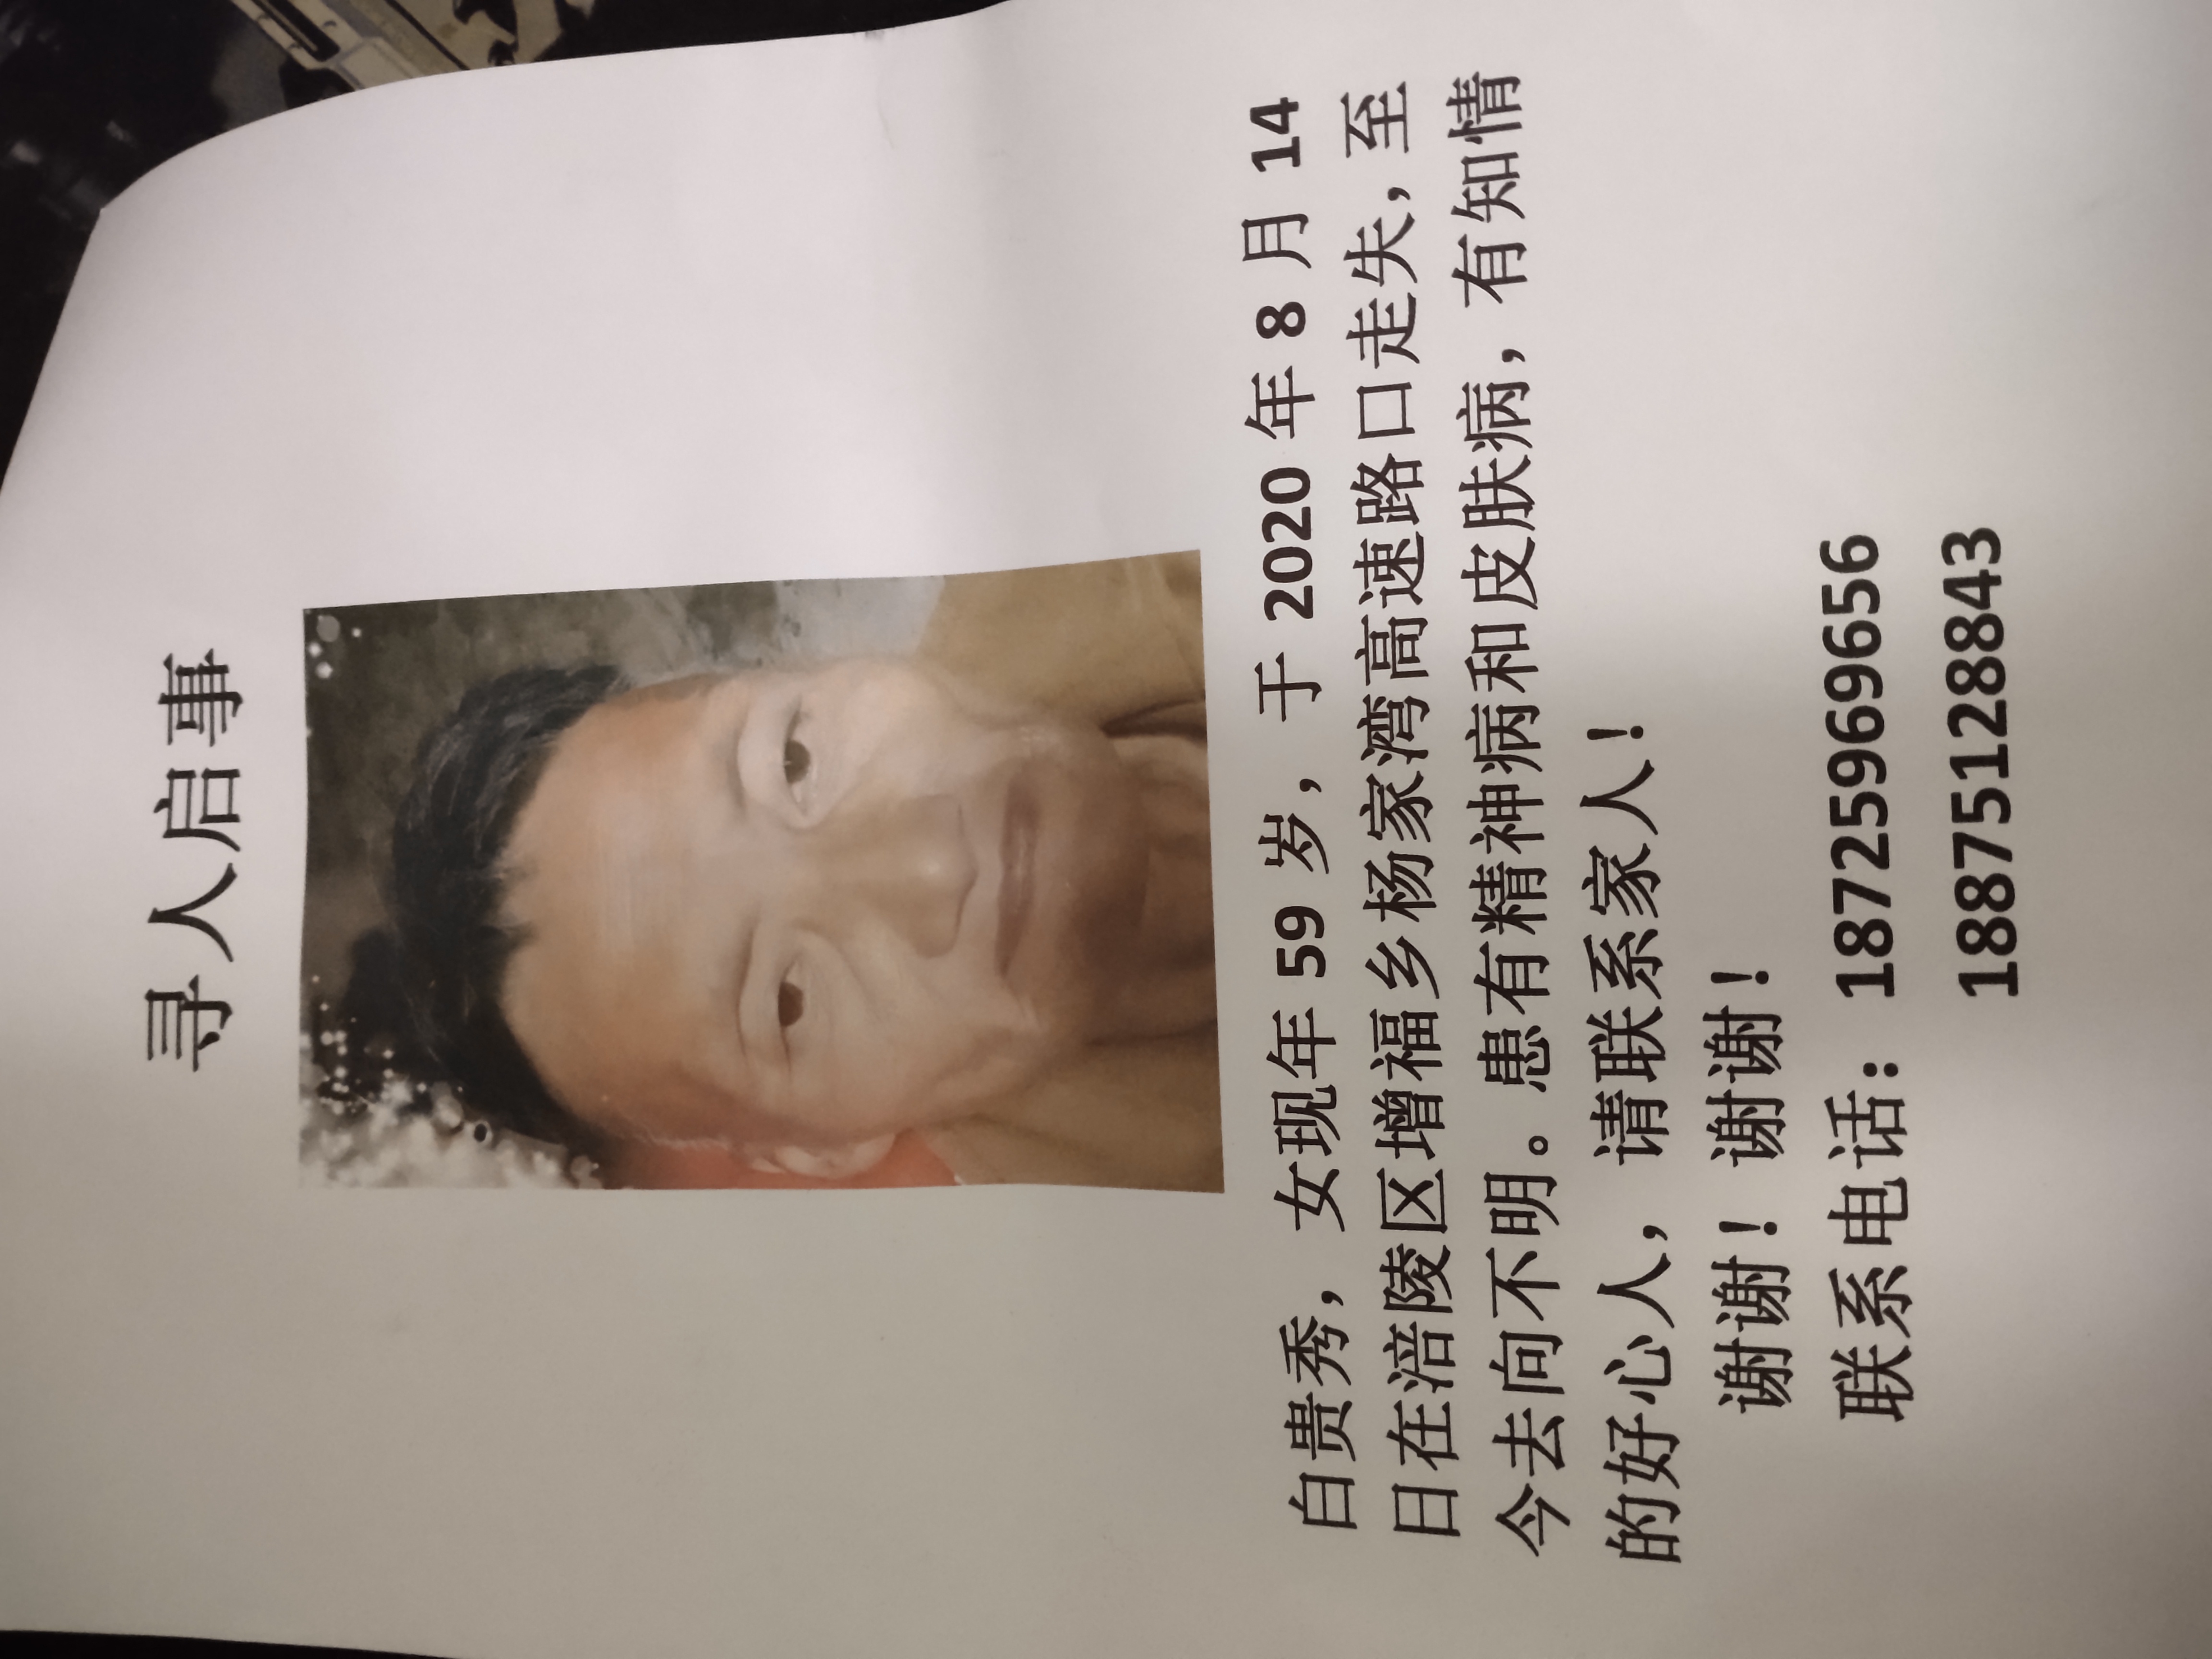 寻人启事
白贵秀，女现年 59 岁，于 2020 年 8 月 14
日在涪陵区增福乡杨家湾高速路口走失，至
今去向不明。患有精神病和皮肤病，有知情
的好心人，请联系家人！
谢谢！谢谢！
联系电话：18725969656
18875128843